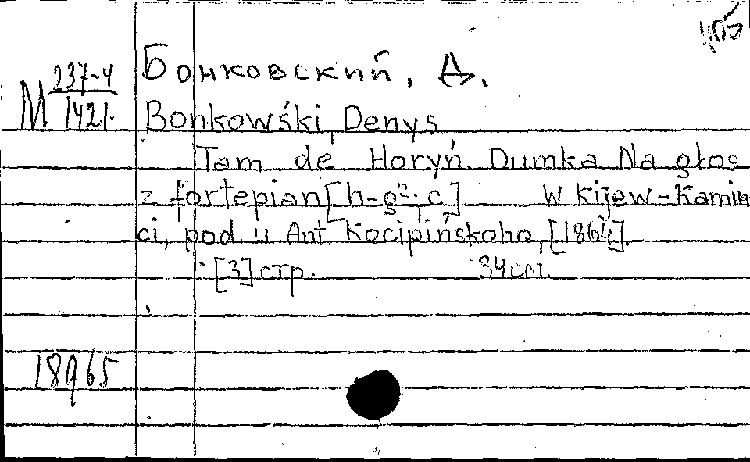 405
М 237-4
1421
Бонковский, Д.
Bonkowśki, Denys
Tam de Horyń. Dumka Na głos
z fortepian [h-g²; c] W Kijew-Kamin
ci, pod u Ant Kocipińskoho, [1861].
[3] стр. 34 см.
18965